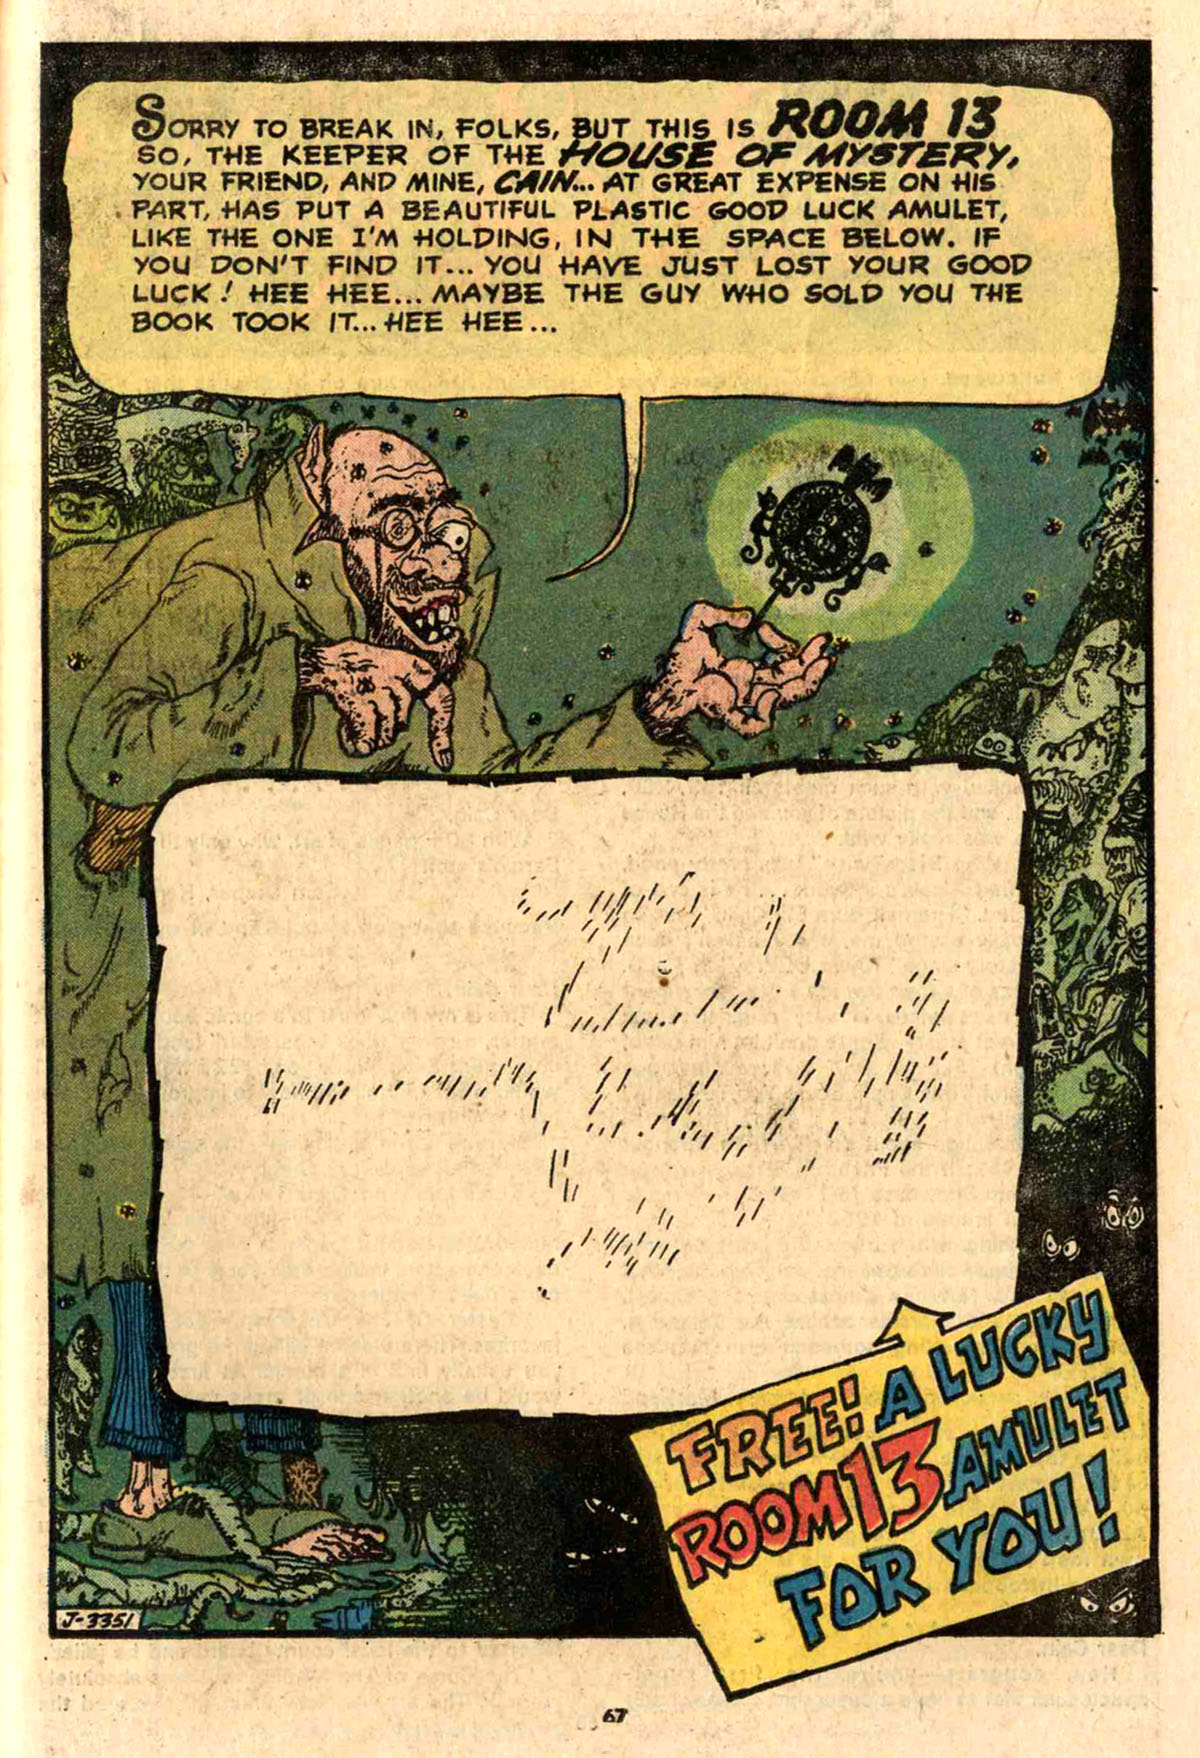 SORRY TO BREAK IN, FOLKS, BUT THIS IS ROOM 13
SO, THE KEEPER OF THE HOUSE OF MYSTERY,
YOUR FRIEND, AND MINE, CAIN... AT GREAT EXPENSE ON HIS
PART, HAS PUT A BEAUTIFUL PLASTIC GOOD LUCK AMULET,
LIKE THE ONE I'M HOLDING, IN THE SPACE BELOW. IF
YOU DON'T FIND IT... YOU HAVE JUST LOST YOUR GOOD
LUCK! HEE HEE... MAYBE THE GUY WHO SOLD YOU THE
BOOK TOOK IT... HEE HEE...
FREE! A LUCKY
ROOM 13 AMULET
FOR YOU!
J-3351
67